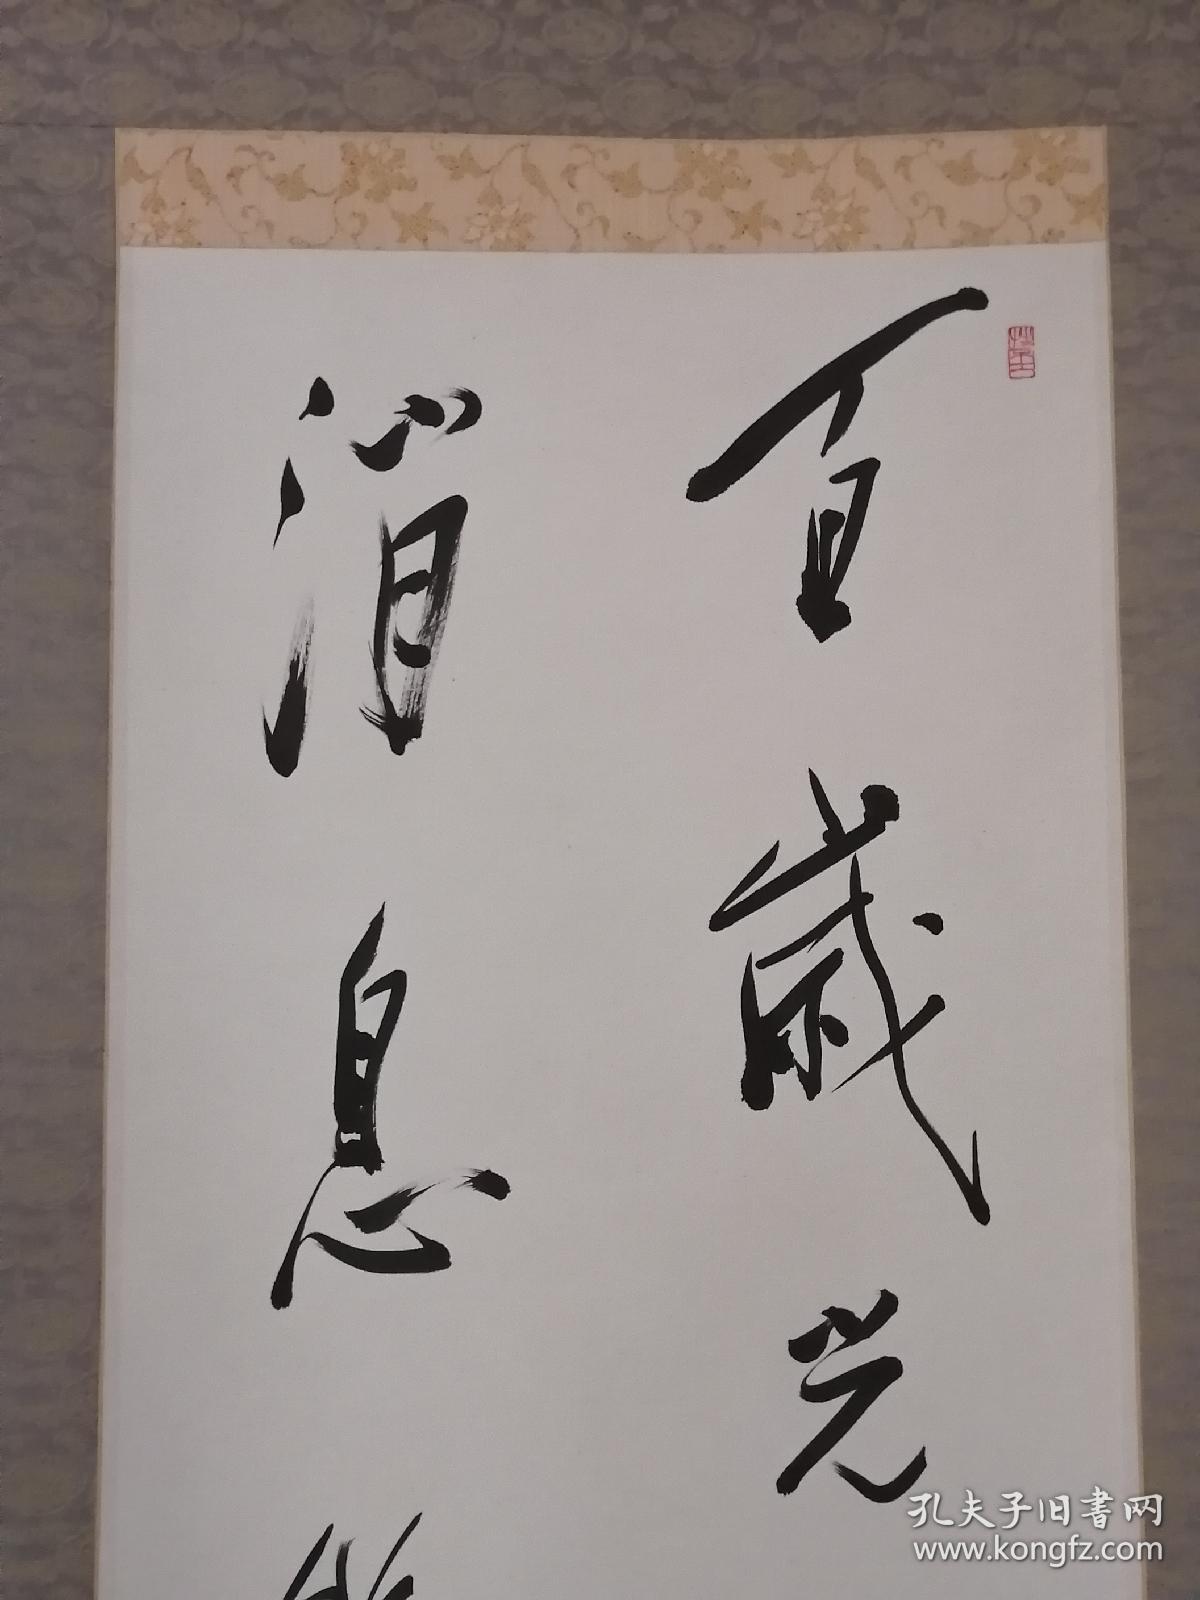 百歳光
消息
孔夫子旧書网
www.kongfz.com